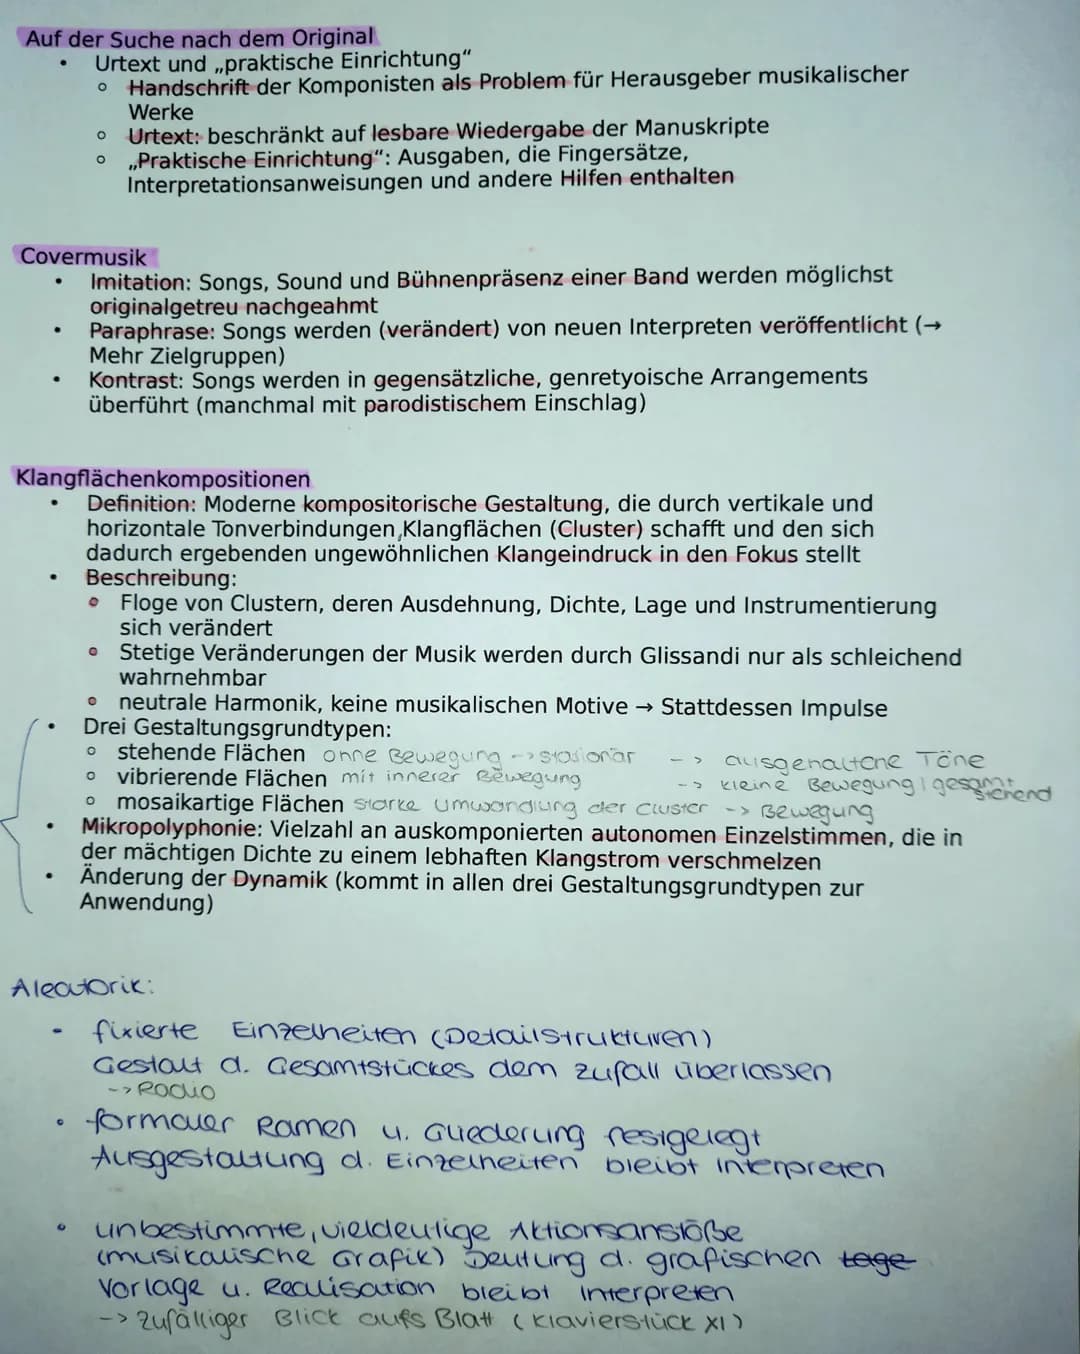 Auf der Suche nach dem Original
• Urtext und „praktische Einrichtung“
◦ Handschrift der Komponisten als Problem für Herausgeber musikalischer
Werke
◦ Urtext: beschränkt auf lesbare Wiedergabe der Manuskripte
◦ „Praktische Einrichtung“: Ausgaben, die Fingersätze,
Interpretationsanweisungen und andere Hilfen enthalten
Covermusik
• Imitation: Songs, Sound und Bühnenpräsenz einer Band werden möglichst
originalgetreu nachgeahmt
• Paraphrase: Songs werden (verändert) von neuen Interpreten veröffentlicht (→
Mehr Zielgruppen)
• Kontrast: Songs werden in gegensätzliche, genretyoische Arrangements
überführt (manchmal mit parodistischem Einschlag)
Klangflächenkompositionen
• Definition: Moderne kompositorische Gestaltung, die durch vertikale und
horizontale Tonverbindungen,Klangflächen (Cluster) schafft und den sich
dadurch ergebenden ungewöhnlichen Klangeindruck in den Fokus stellt
• Beschreibung:
◦ Floge von Clustern, deren Ausdehnung, Dichte, Lage und Instrumentierung
sich verändert
◦ Stetige Veränderungen der Musik werden durch Glissandi nur als schleichend
wahrnehmbar
◦ neutrale Harmonik, keine musikalischen Motive → Stattdessen Impulse
• Drei Gestaltungsgrundtypen:
◦ stehende Flächen ohne Bewegung --> stationär --> ausgehaltene Töne
◦ vibrierende Flächen mit innerer Bewegung --> kleine Bewegung, gesamt stehend
◦ mosaikartige Flächen starke Umwandlung der Cluster --> Bewegung
• Mikropolyphonie: Vielzahl an auskomponierten autonomen Einzelstimmen, die in
der mächtigen Dichte zu einem lebhaften Klangstrom verschmelzen
• Änderung der Dynamik (kommt in allen drei Gestaltungsgrundtypen zur
Anwendung)
Aleatorik:
• fixierte Einzelheiten (Detailstrukturen)
Gestalt d. Gesamtstückes dem Zufall überlassen
--> Radio
• formaler Ramen u. Gliederung festgelegt
Ausgestaltung d. Einzelheiten bleibt Interpreten
• unbestimmte, vieldeutige Aktionsanstöße
(musikalische Grafik) Deutung d. grafischen tage
Vorlage u. Realisation bleibt Interpreten
--> zufälliger Blick aufs Blatt (Klavierstück XI)